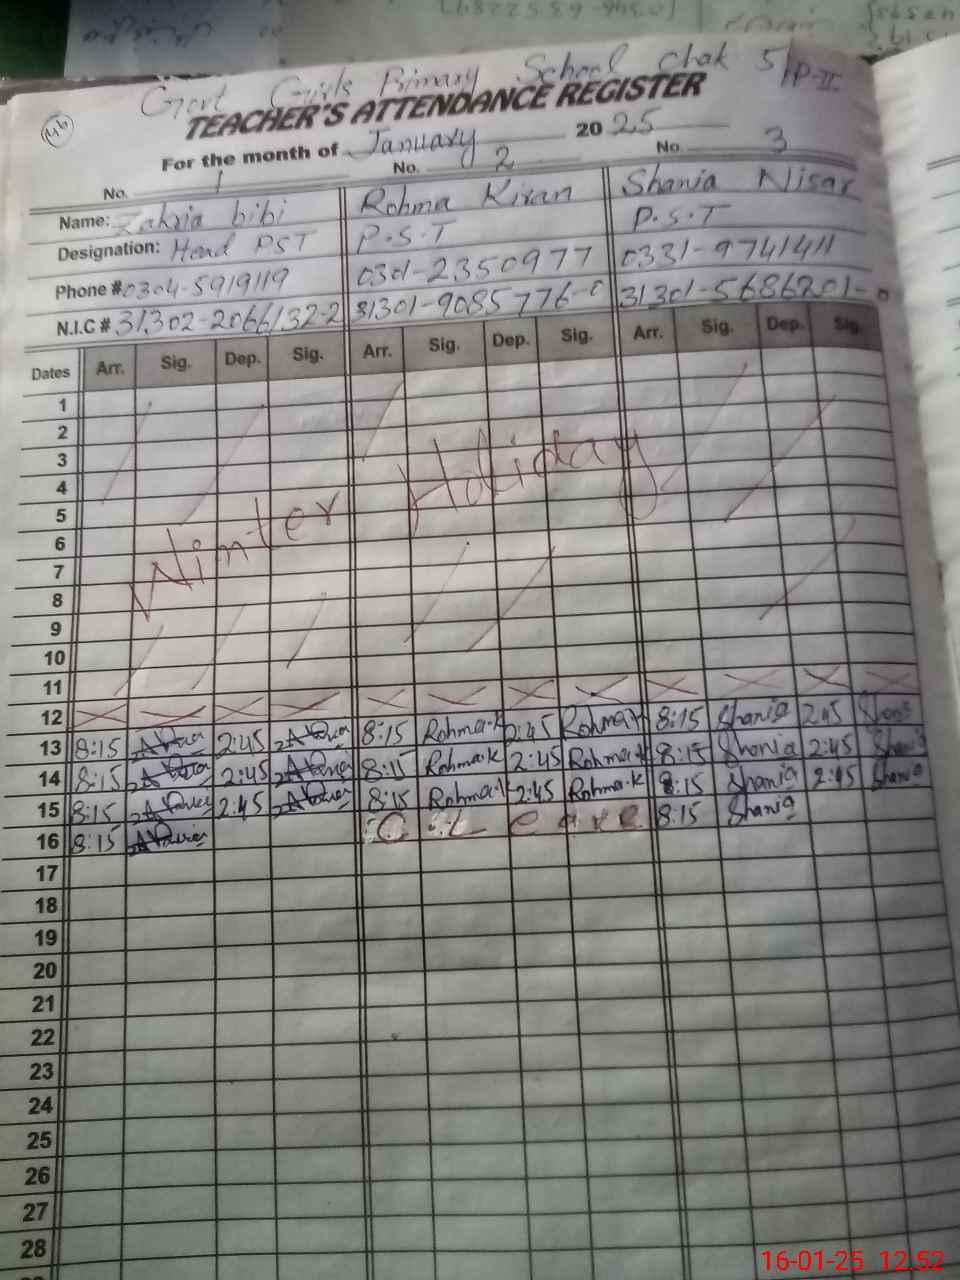 Govt Girls Primary School Chak 51/P-II
TEACHER'S ATTENDANCE REGISTER
For the month of January 2025
No. 1 No. 2 No. 3
Name: Zakria bibi Rohma Kiran Shania Nisar
Designation: Head PST P.S.T P.S.T
Phone # 0304-5919119 0301-2350977 0331-9741411
N.I.C # 31302-2066132-2 31301-9085776-0 31301-5686201-0
Dates Arr. Sig. Dep. Sig. Arr. Sig. Dep. Sig. Arr. Sig. Dep. Sig.
1
2
3
4
5
Winter Holiday
6
7
8
9
10
11
12
13 8:15 2:45 8:15 Rohma.k 2:45 Rohma.k 8:15 Shania 2:45 Shania
14 8:15 2:45 8:15 Rohma.k 2:45 Rohma.k 8:15 Shania 2:45 Shania
15 8:15 2:45 8:15 Rohma.k 2:45 Rohma.k 8:15 Shania 2:45 Shania
16 8:15 C Leave 8:15 Shania
17
18
19
20
21
22
23
24
25
26
27
28
16-01-25 12:52